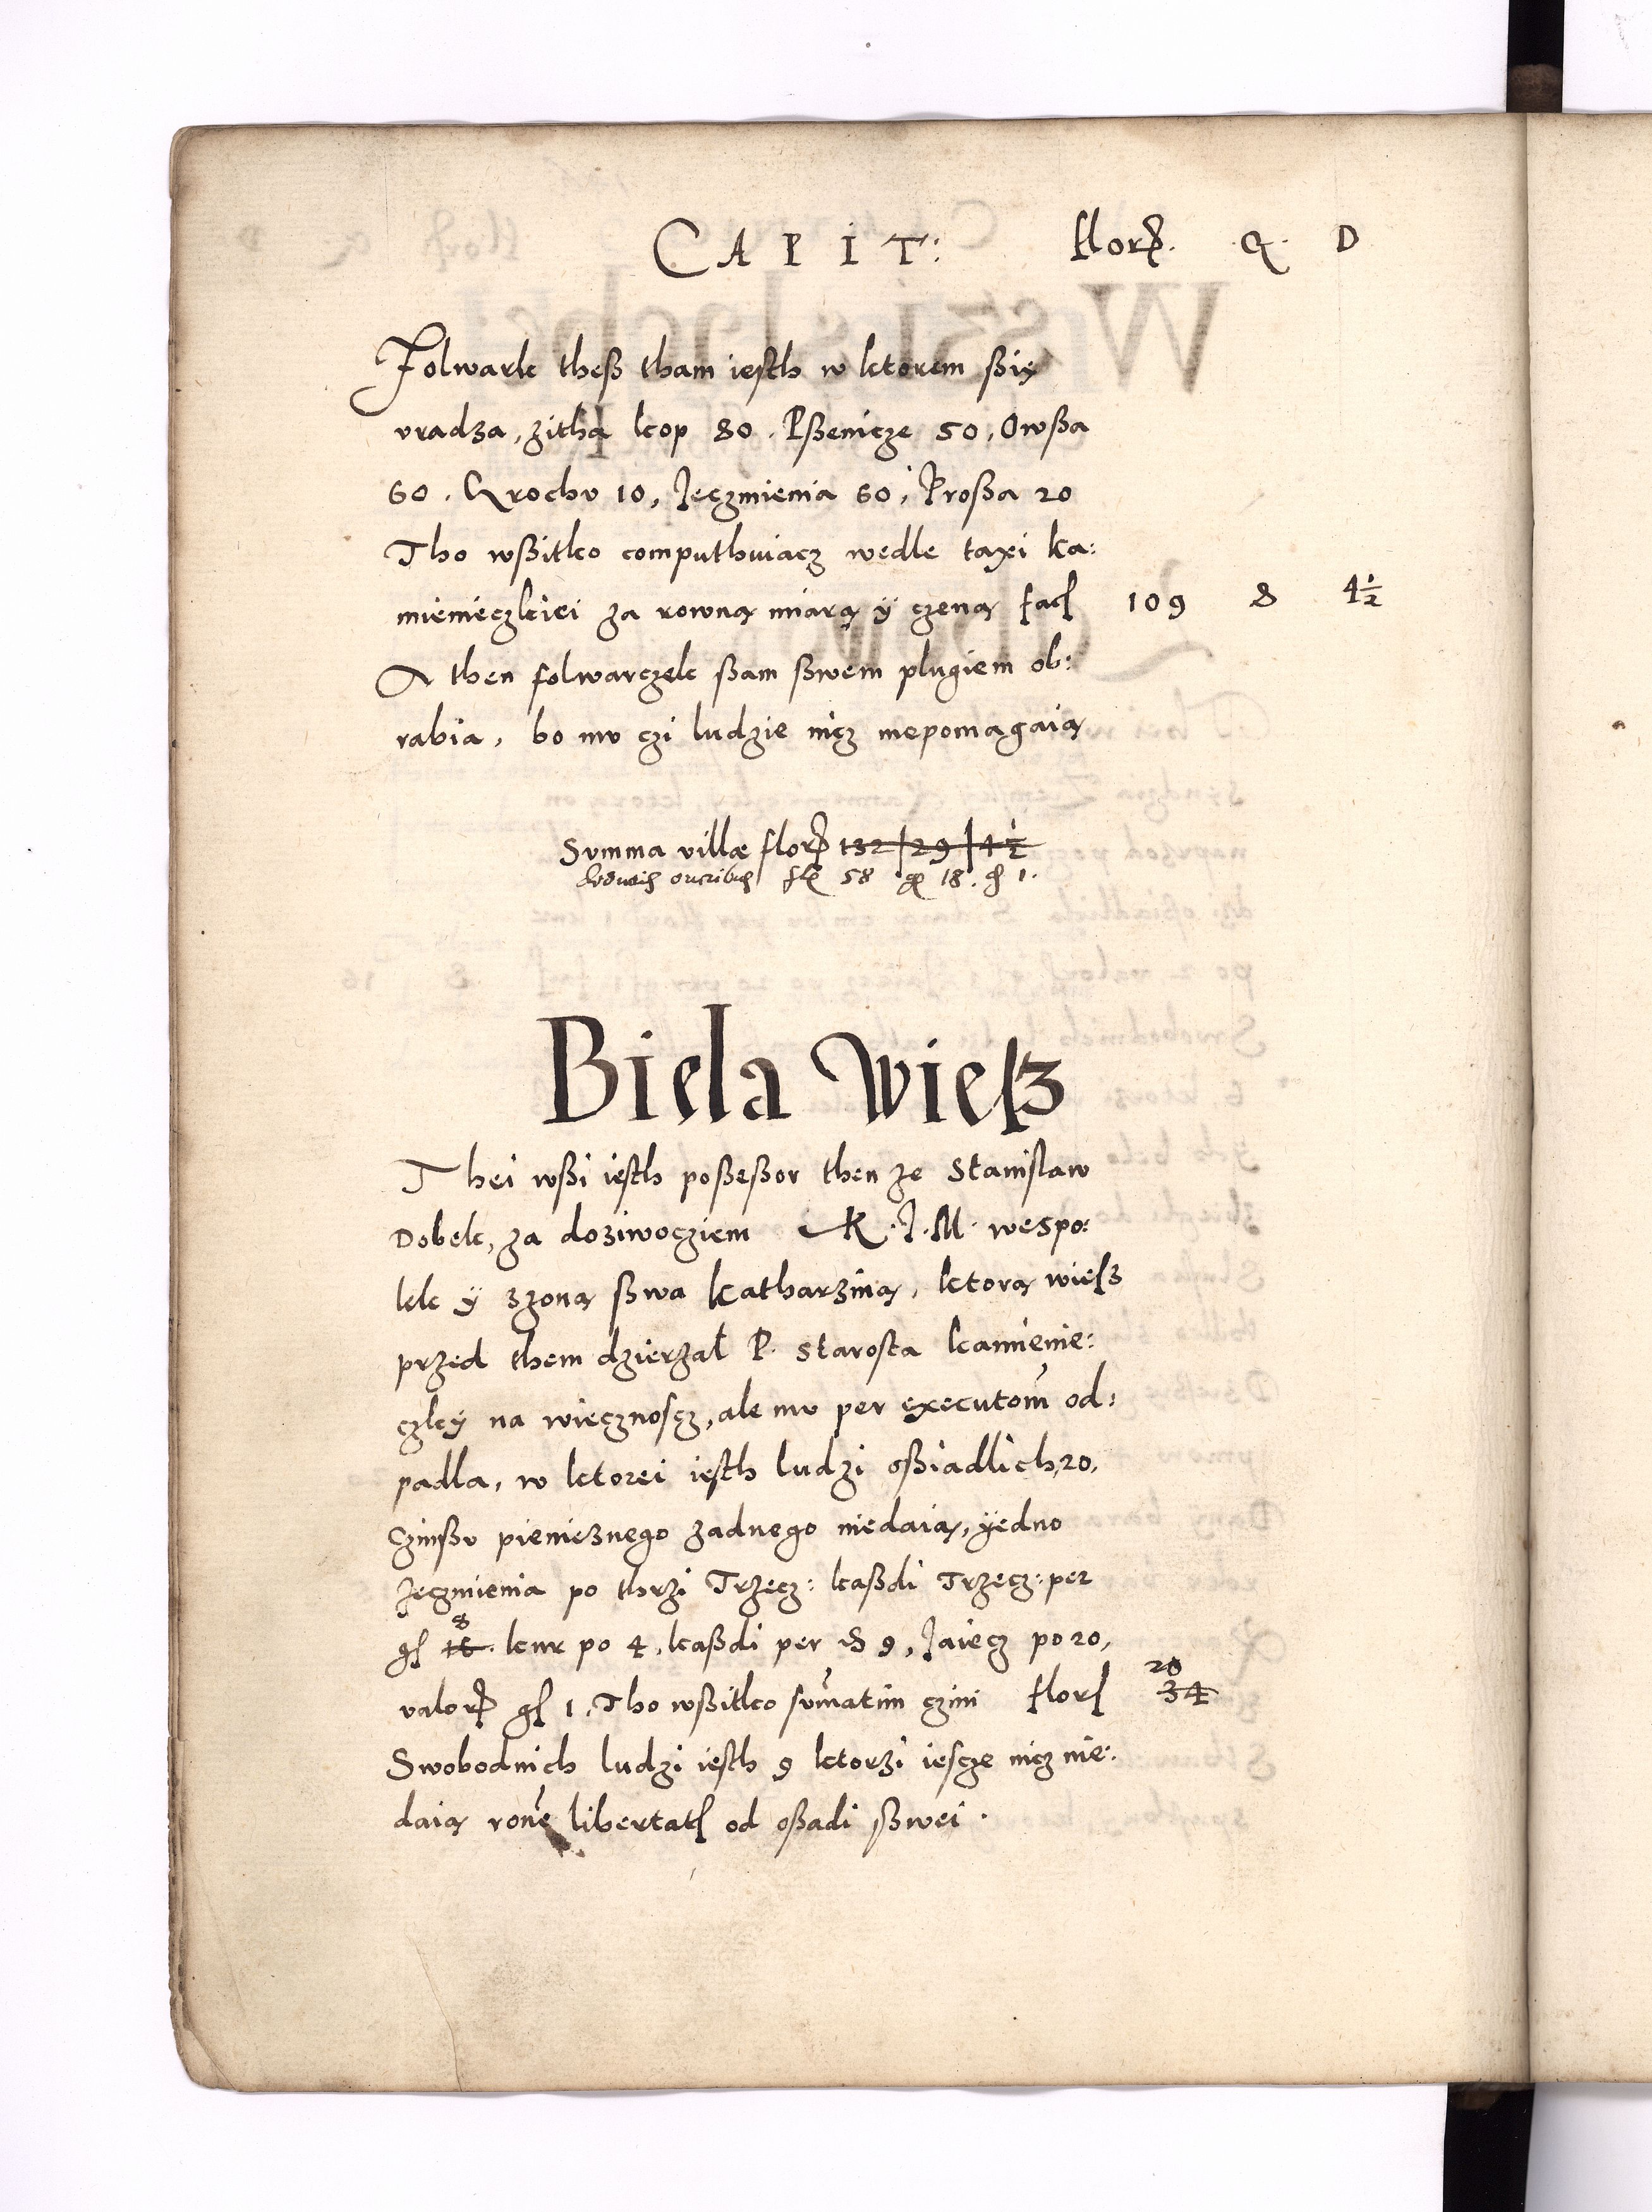 CAPIT: flor. G. D
Folwark theß tham iesth w ktorem ßię
vradza, zitha kop 80. Pßenicze 50, Owßa
60. Grochv 10, Jęczmienia 60, Proßa 20
Tho wßitko computhuiącz wedle taxi Ka:
mienieczkiei za rowną miarą ÿ czeną fac 109 8 4½
A then folwarczek ßam ßwem plugiem ob:
rabia, bo mv czi ludzie nicz niepomagaią
Svmma villæ flor 132 | 29 | 4½
fl 58 g 18. d 1.
Biela Wiesz
Thei wßi iesth poßeßor then ze Stanislaw
Dobek, za doziwocziem K. J. M. wespo:
lek ÿ zzoną ßwa Katharziną, ktorą wiesz
przed them dzierzal P. starosta kamienie:
czkÿ na wiecznoscz, ale mv per executom od:
padla, w ktorei iesth ludzi oßiadlich 20,
Czinßv pienieznego zadnego niedaią, ÿedno
Jęczmienia po thrzi Trzecz: kaßdi Trzecz: per
g 8 16. kur po 4, kaßdi per D 9, Jaiecz po 20,
valor g 1, Tho wßitko sumatim czini flor 20 34
Swobodnich ludzi iesth 9 ktorzi iescze nicz nie:
daią rone libertat od oßadi ßwei.